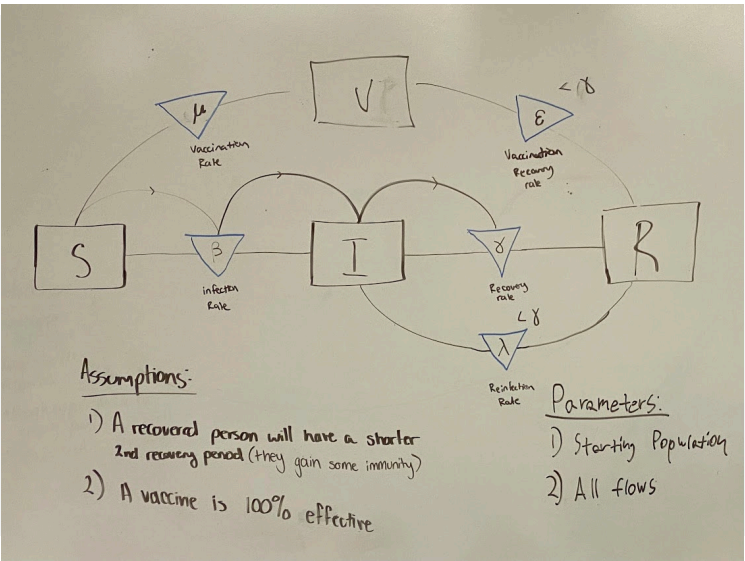 V
< γ
μ
ε
Vaccination
Rate
Vaccination
Recovery
rate
S
β
I
γ
R
infection
Rate
Recovery
rate
< γ
λ
Reinfection
Rate
Assumptions:
1) A recovered person will have a shorter
2nd recovery period (they gain some immunity)
2) A vaccine is 100% effective
Parameters:
1) Starting Population
2) All flows